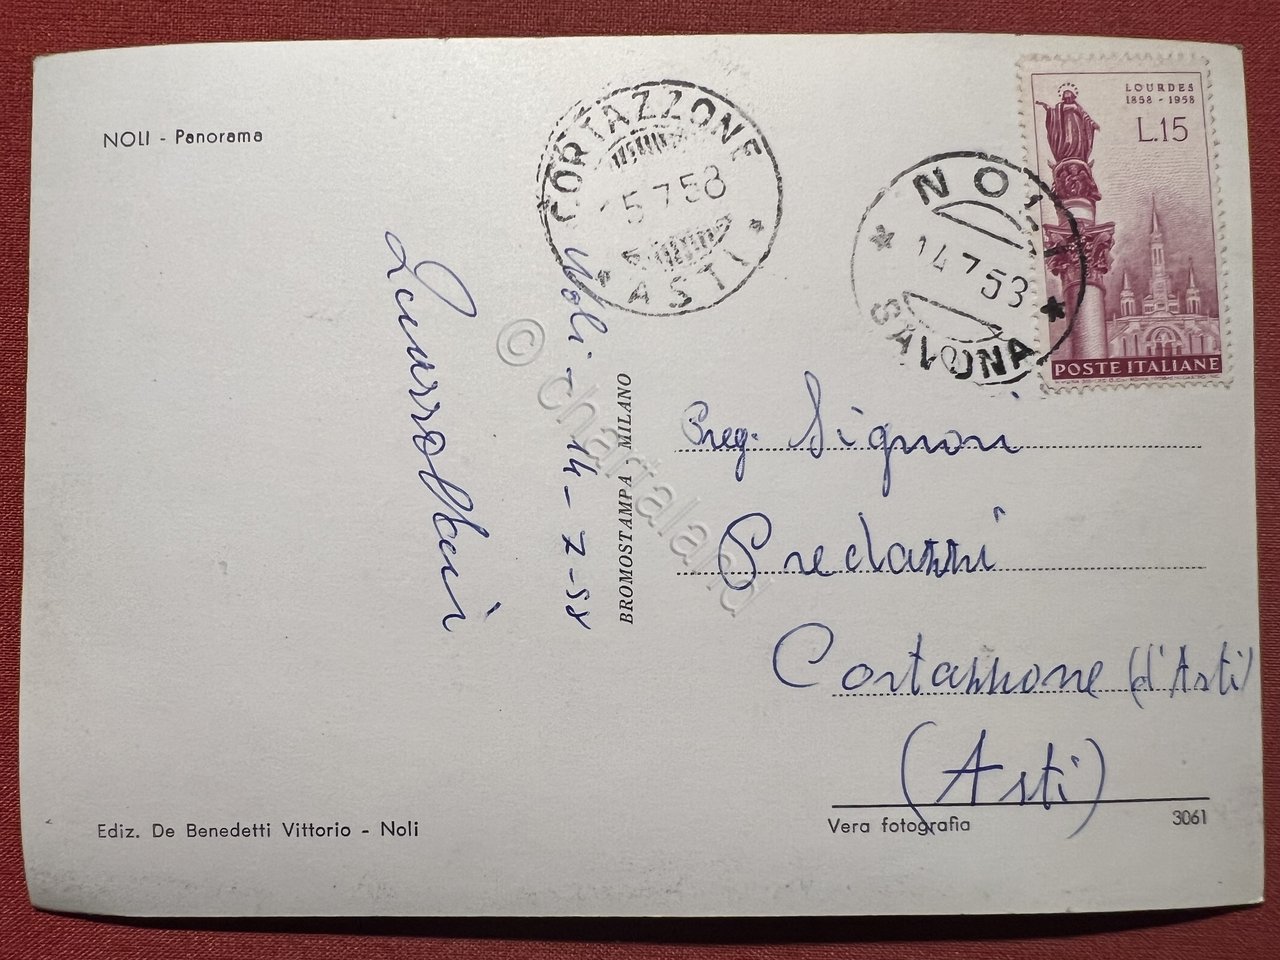 NOLI - Panorama
CORTAZZONE
15.7.58
ASTI
NOLI
14.7.58
SAVONA
LOURDES
1858 - 1958
L.15
POSTE ITALIANE
Noli - 14-7-58
BROMOSTAMPA - MILANO
© chartaland
Preg. Signori
Predazzi
Cortazzone (d'Asti)
(Asti)
Ediz. De Benedetti Vittorio - Noli
Vera fotografia
3061